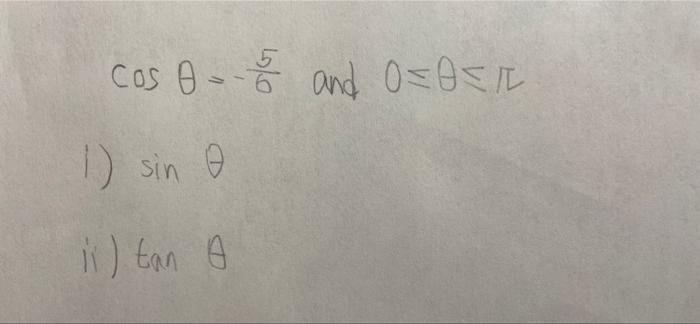 cos θ = -5/6 and 0≤θ≤π
i) sin θ
ii) tan θ